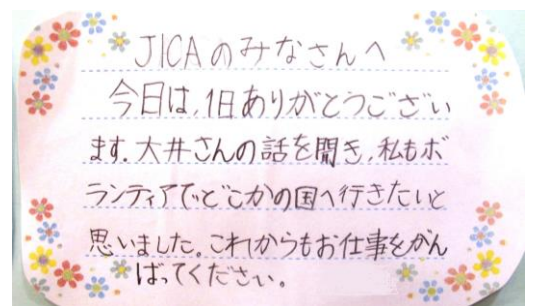 JICAのみなさんへ
今日は、1日ありがとうござい
ます。大井さんの話を聞き、私もボ
ランティアでどこかの国へ行きたいと
思いました。これからもお仕事をがん
ばってください。